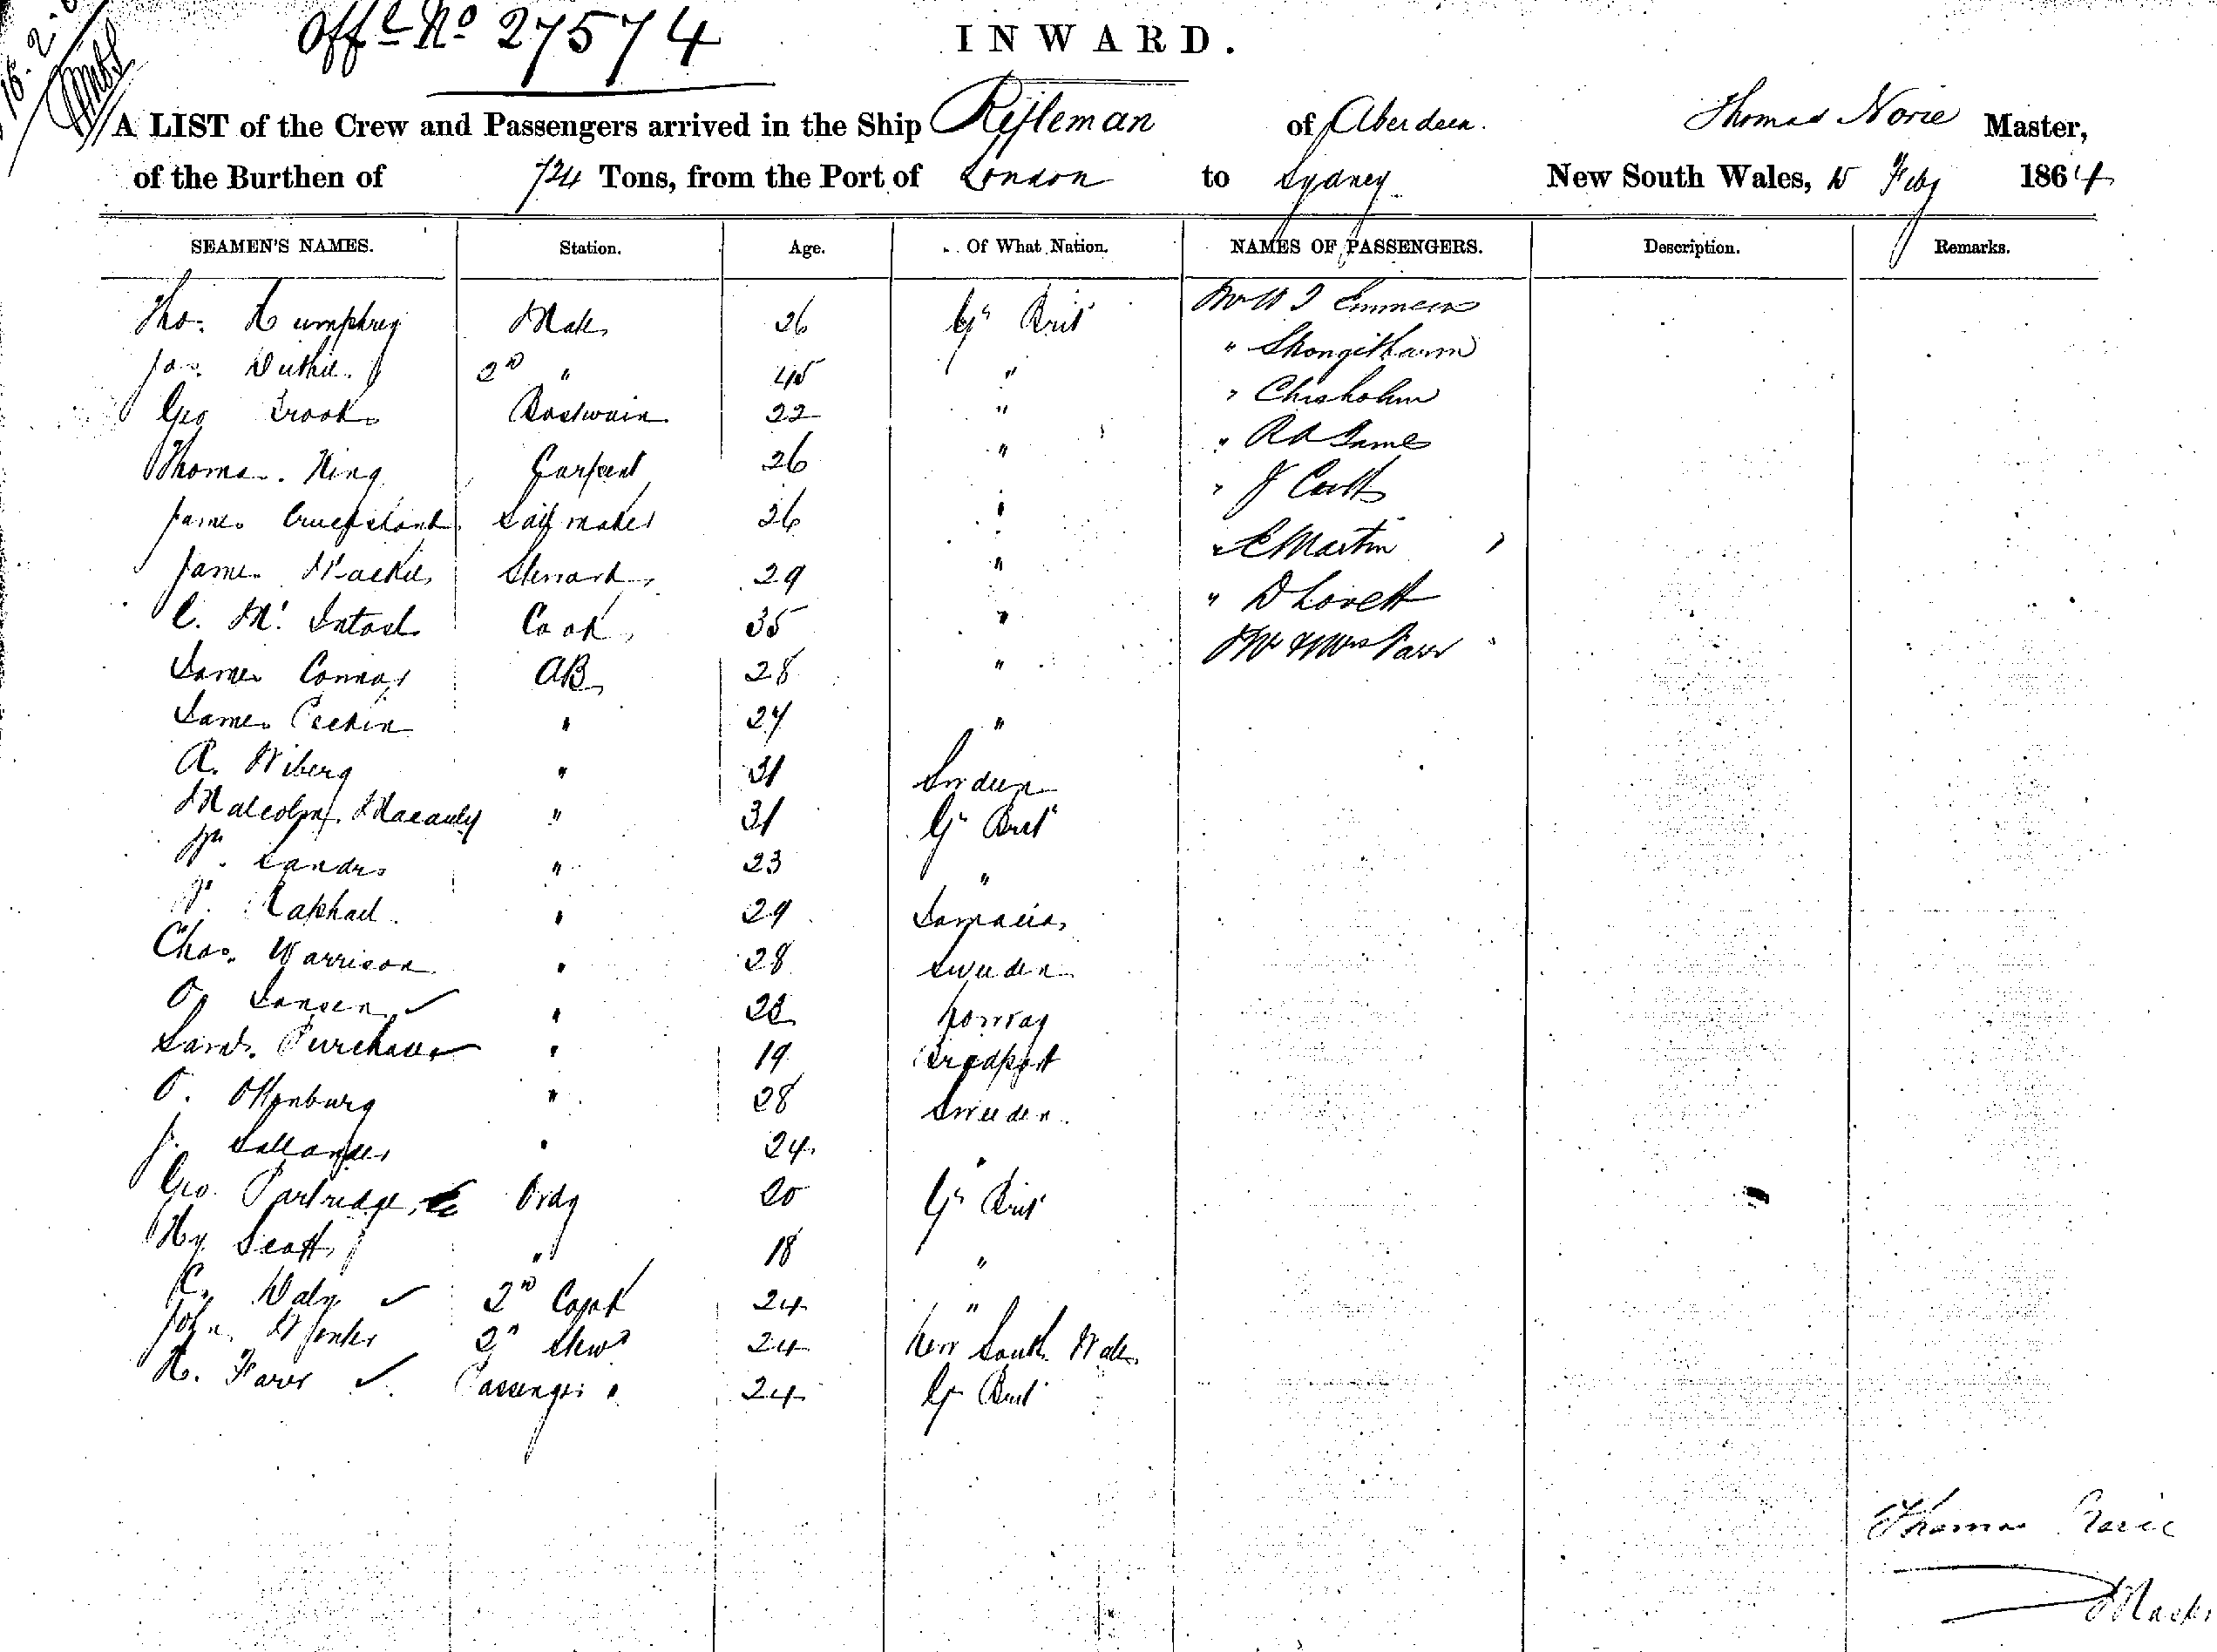 Offl No 27574
INWARD.
A LIST of the Crew and Passengers arrived in the Ship Rifleman of Aberdeen. Thomas Norie Master,
of the Burthen of 724 Tons, from the Port of London to Sydney New South Wales, 15 Feby 1864
SEAMEN'S NAMES. Station. Age. Of What Nation. NAMES OF PASSENGERS. Description. Remarks.
Tho. Humphrey Mate 26 Gt Brit Mr W J
Jas. Duthie 2nd " 45 " " Skongitharm
Geo Crook Boatswain 22 " " Chisholm
Thomas King Carpent 26 " "
James Cruickshank Sailmaker 26 " " J Coutts
James Mackie Steward 29 " " E Martin
C. McIntosh Cook 35 " " D Lovett
James Connor AB 28 " Mr & Mrs Parr
James " 27 "
A. Wiberg " 31 Sweden
Malcolm Macauly " 31 Gt Brit
" 23 "
Raphael " 29 Jamaica
Chas. Warrison " 28 Sweden
O Jansen " 23 Norway
Purchase " 19
O. Ottenburg " 28 Sweden
J. " 24 "
Geo. Partridge Ordy 20 Gt Brit
Hy. Scott " 18 "
Daly 2nd 24 "
John 2d Stewd 24 New South Wales
H. Farr Passenger 24 Gt Brit
Thomas Norie
Master